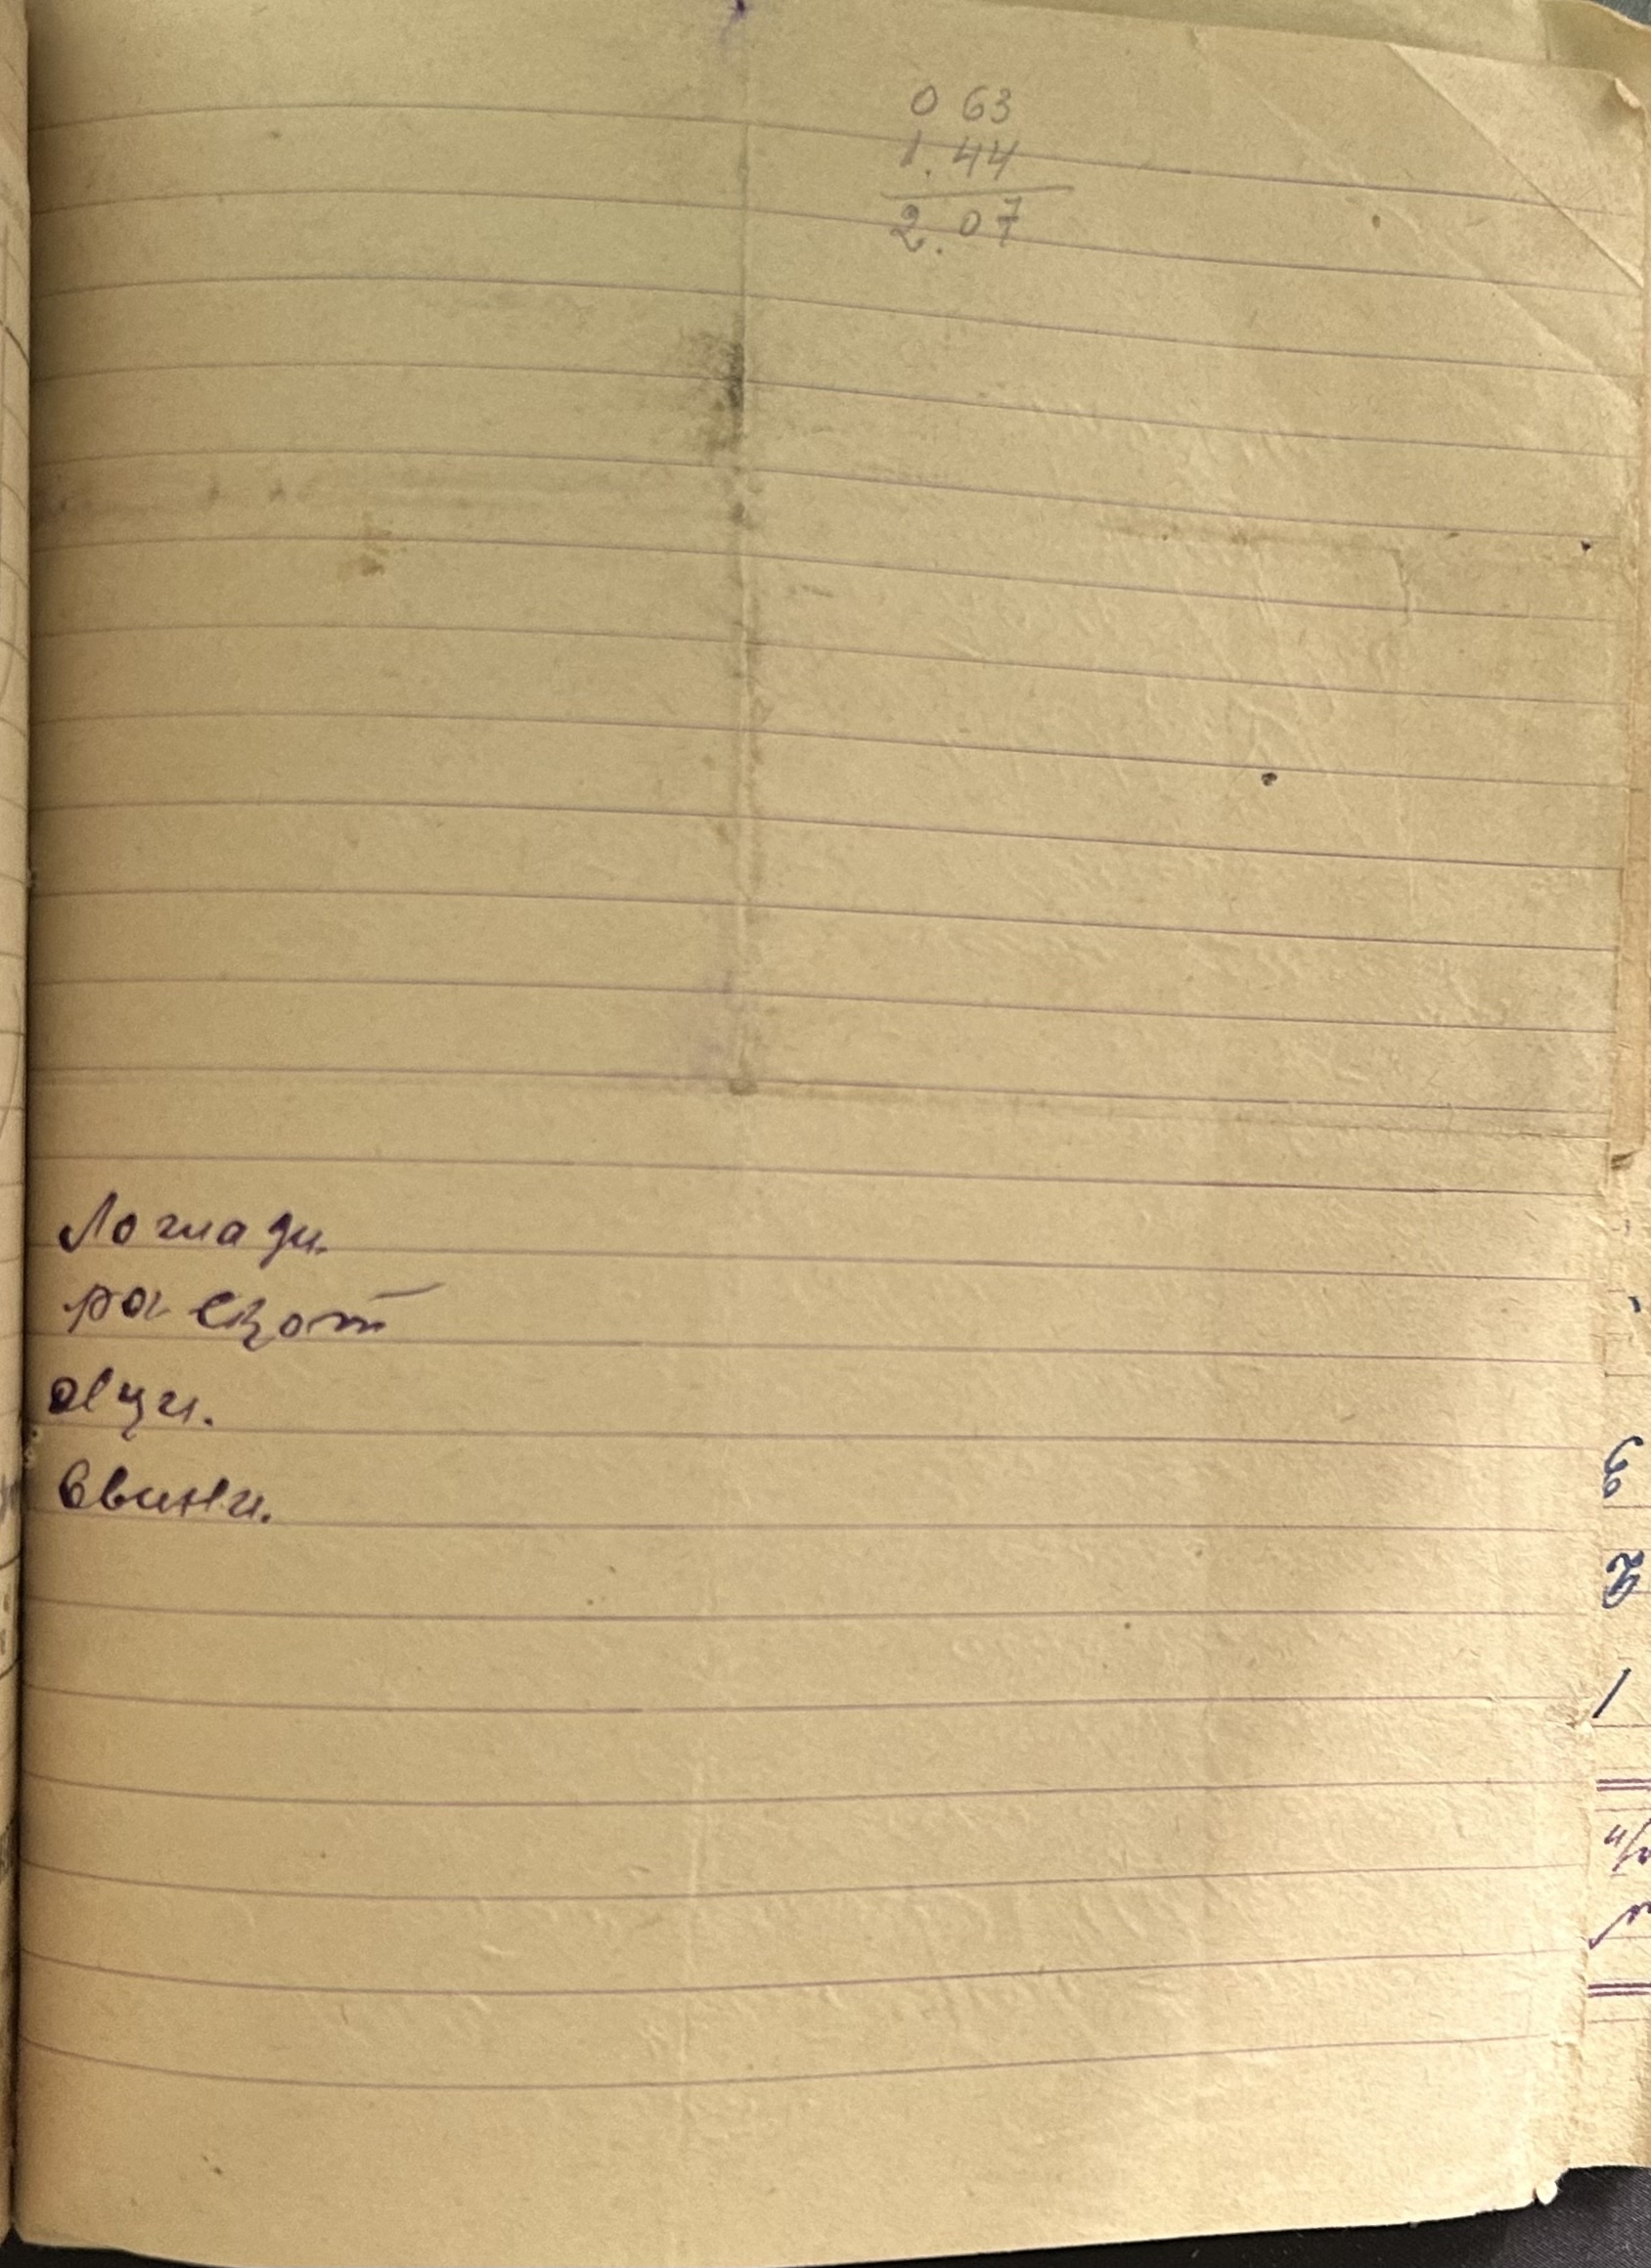 0 63
1. 44
2. 07
Лошади.
ра скот
овци.
Свини.
3
2
1